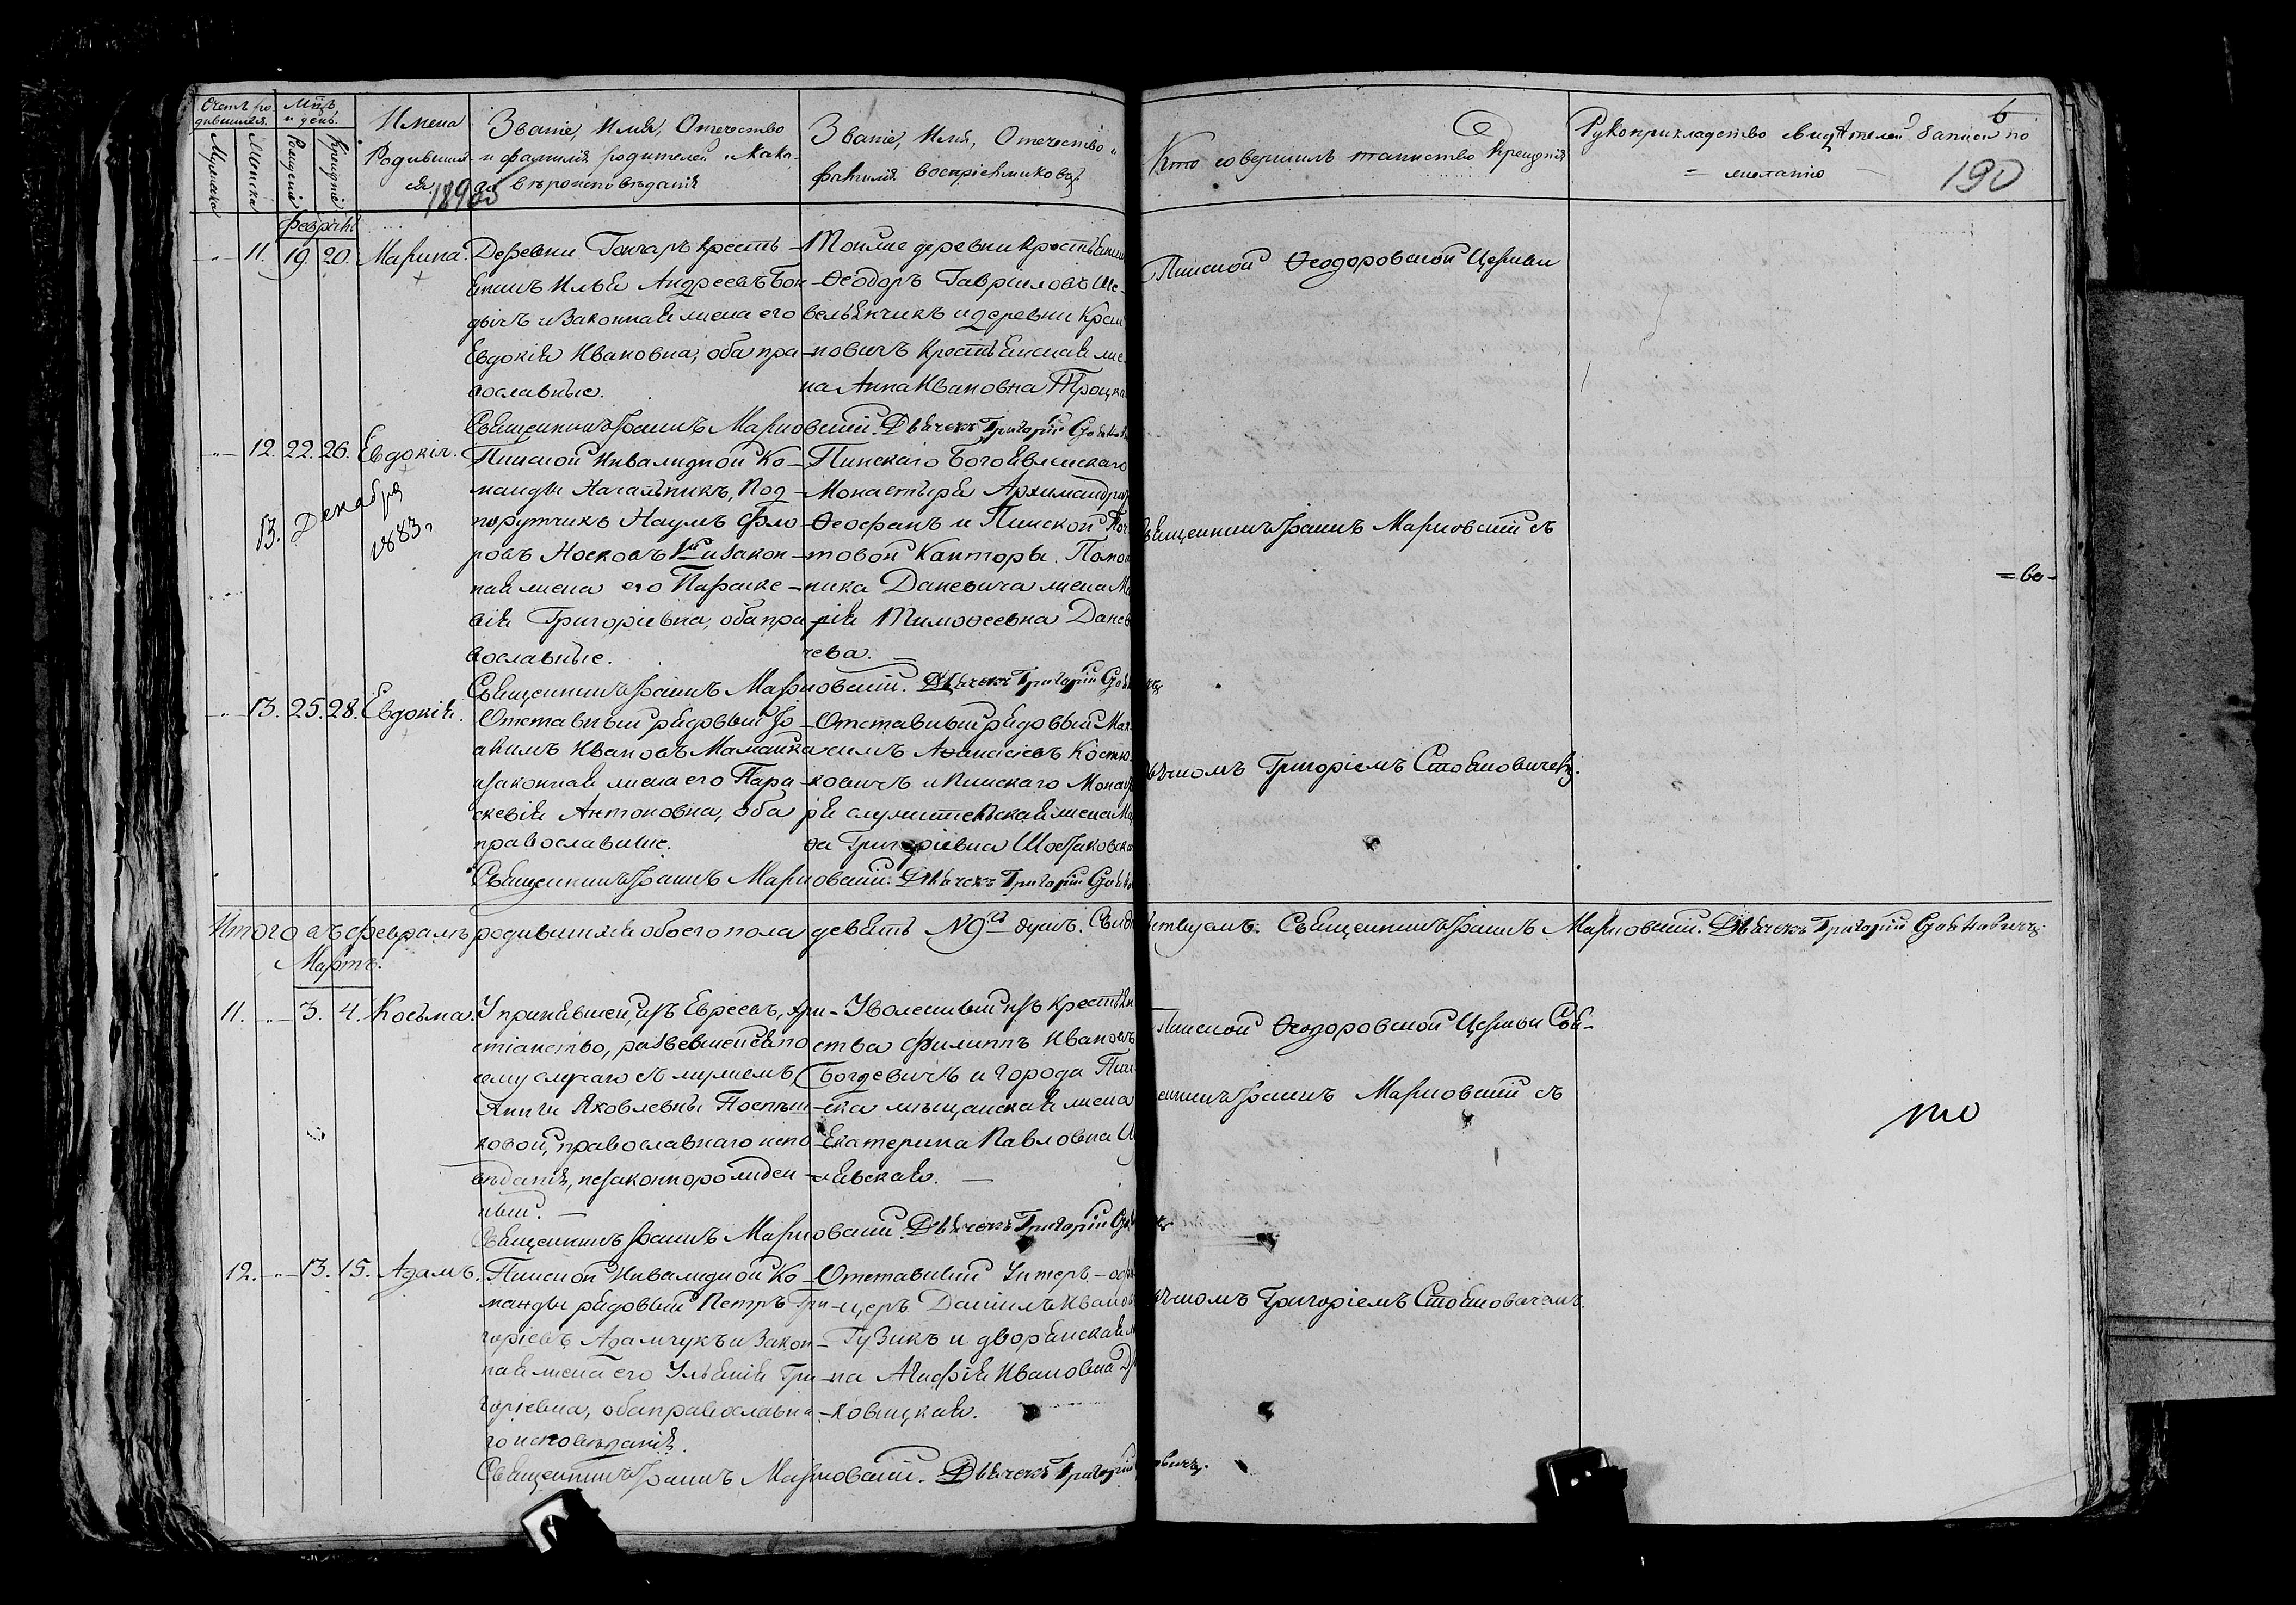 Счетъ ро-
дившихся.
Мужеска
Женска
Мцъ
и день.
Рождения
Крещения
Имена
Родивших-
ся.
Званіе, Имя, Отечество
и фамилія родителей и како-
го вѣроисповѣданія
Званіе, Имя, Отечество и
фамилія воспріемниковъ.
Кто совершилъ таинство крещенія
Рукоприкладство свидѣтелей записи по
= желанію
6
190
Февраль
11. 19. 20. Марина.
Деревни Гончаръ кресть-
янинъ Илья Андреевъ Бон
дычъ и законная жена его
Евдокія Ивановна, оба пра-
вославные.
Тойже деревни крестьянин
Ѳеодоръ Гавриловъ Ше-
вельянчикъ и деревни Край
новичъ крестьянская же-
на Анна Ивановна Троцка
Пинской Ѳеодоровской Церкви
Священникъ Марковскій. Дьячекъ Григорій
12. 22. 26. Евдокія.
Пинской Инвалидной Ко-
манды Начальникъ, Под-
порутчикъ Наумъ Фло-
ровъ Носковъ и закон-
ная жена его Параске-
вія Григоріевна, оба пра-
вославные.
Пинскаго Богоявленскаго
Монастыря Архимандрит
Ѳеофанъ и Пинской Поч
товой Канторы. Помощ
ника Даневича жена Ма
рія Тимоѳеевна Данев
чева.
13. Декабря
1883 г
Священникъ Марковскій съ
= во -
Священникъ Марковскій. Дьячекъ Григорій
13. 25. 28. Евдокія.
Отставный рядовый Іо-
акимъ Ивановъ Мамайка
и законная жена его Пара-
скевія Антоновна, оба
православные.
Отставный рядовый Мак
симъ Аѳанасіевъ Костю-
ковичъ и Пинскаго Монаст
ря служительская жена Ма
Григоріевна
Дьячкомъ Григоріемъ Стояновичемъ.
Священникъ Марковскій. Дьячекъ Григорій
Итого въ Февралѣ родившихся обоего пола девять №9 душъ. Свидѣтельствуемъ: Священникъ Марковскій. Дьячекъ Григорій Стояновичъ.
Мартъ.
11. 3. 4. Косьма.
У принявшей, изъ Евреевъ, хри-
стіанство, разведшейся по
сему случаю съ мужемъ,
Анны Яковлевны Поспѣш-
ковой, православнаго испо
вѣданія, незаконнорожден-
ный.
Уволенный изъ крестьян
ства Филиппъ Ивановъ
Богдевичъ и города Пин-
ска мѣщанская жена
Екатерина Павловна
Пинской Ѳеодоровской Церкви Свя-
щенникъ Марковскій съ
тно
Священникъ Марковскій. Дьячекъ Григорій
12. 13. 15. Адамъ.
Пинской Инвалидной Ко-
манды рядовый Петръ Гри-
горіевъ Адамчукъ и закон-
ная жена его Ульянія Гри-
горіевна, оба православна-
го исповѣданія.
Отставный Унтеръ-офи
церъ Даніилъ Иванов
Гузикъ и дворянская же
на Агафія Ивановна
ковицкая.
Дьячкомъ Григоріемъ Стояновичемъ.
Священникъ Марковскій. Дьячекъ Григорій